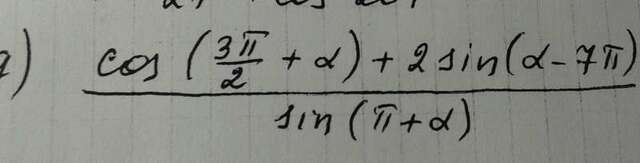 ) cos (3π/2 + α) + 2 sin(α - 7π)
sin (π + α)